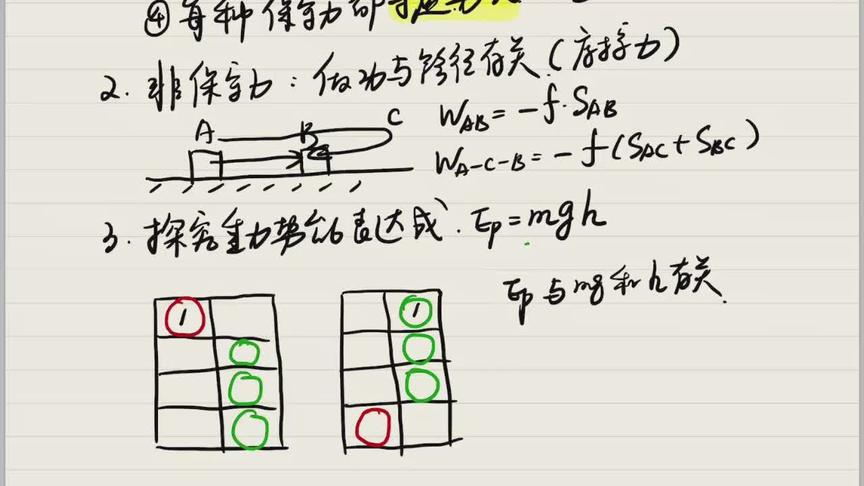 ④每种保守力都对应
2. 非保守力:做功与路径有关.(摩擦力)
A B C W_AB = -f·S_AB
W_A-C-B = -f(S_AC + S_BC)
3. 探究重力势能的表达成. Ep = mgh
Ep与mg和h有关.
1 1